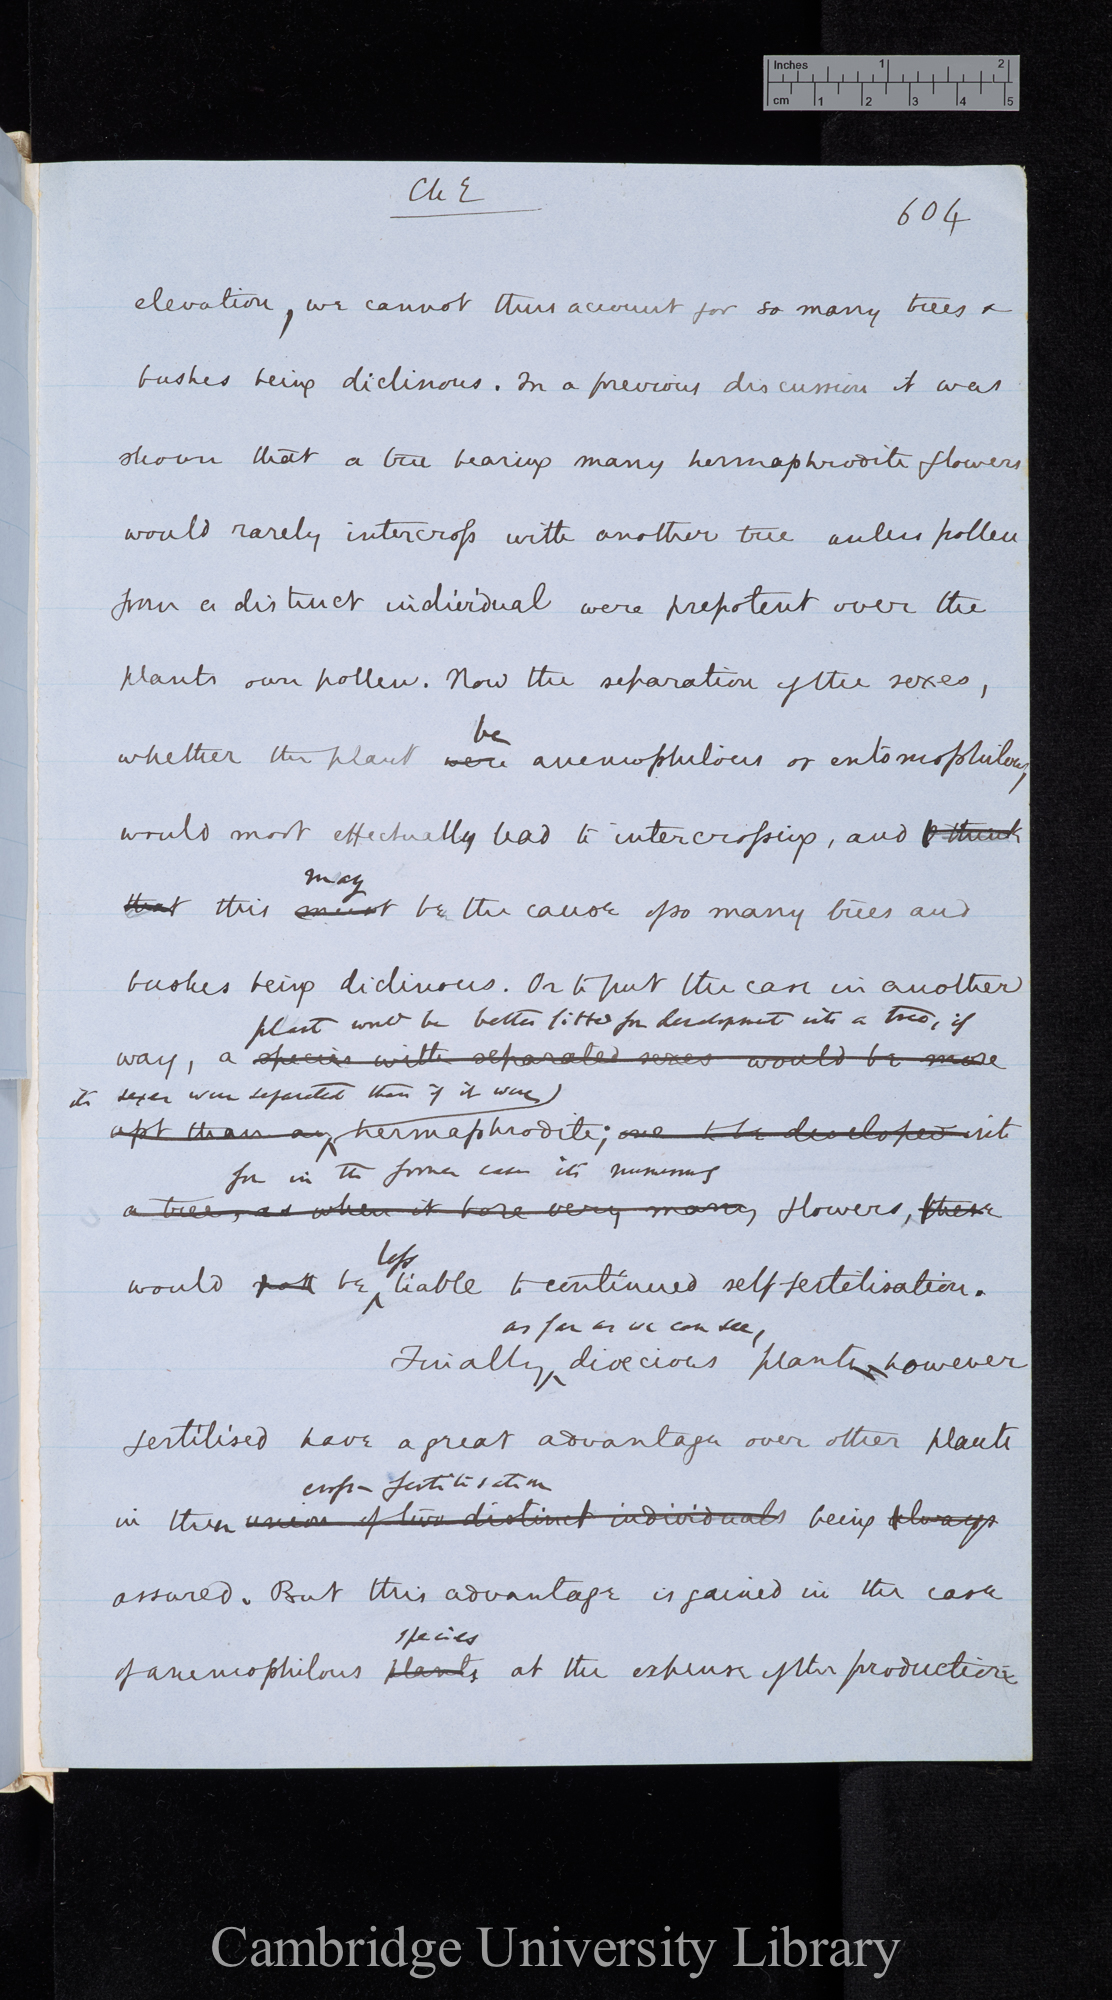 Inches 1 2
cm 1 2 3 4 5
Ch E
604
elevation, we cannot thus account for so many trees &
bushes being diclinous. In a previous discussion it was
shown that a tree bearing many hermaphrodite flowers
would rarely intercross with another tree unless pollen
from a distinct individual were prepotent over the
plants own pollen. Now the separation of the sexes,
be
whether the plant were anemophilous or entomophilous,
would most effectually lead to intercrossing, and I think
may
that this must be the cause of so many trees and
bushes being diclinous. Or to put the case in another
plant would be better fitted for development into a tree, if
way, a species with separated sexes would be more
its sexes were separated than if it were
apt than an hermaphrodite; one to be developed into
for in the former case its numerous
a tree, as when it bore very many flowers, these
less
would not be liable to continued self-fertilisation.
as far as we can see,
Finally, dioecious plants, however
fertilised have a great advantage over other plants
cross-fertilisation
in their union of two distinct individuals being always
assured. But this advantage is gained in the case
species
of anemophilous plants at the expense of the production
Cambridge University Library